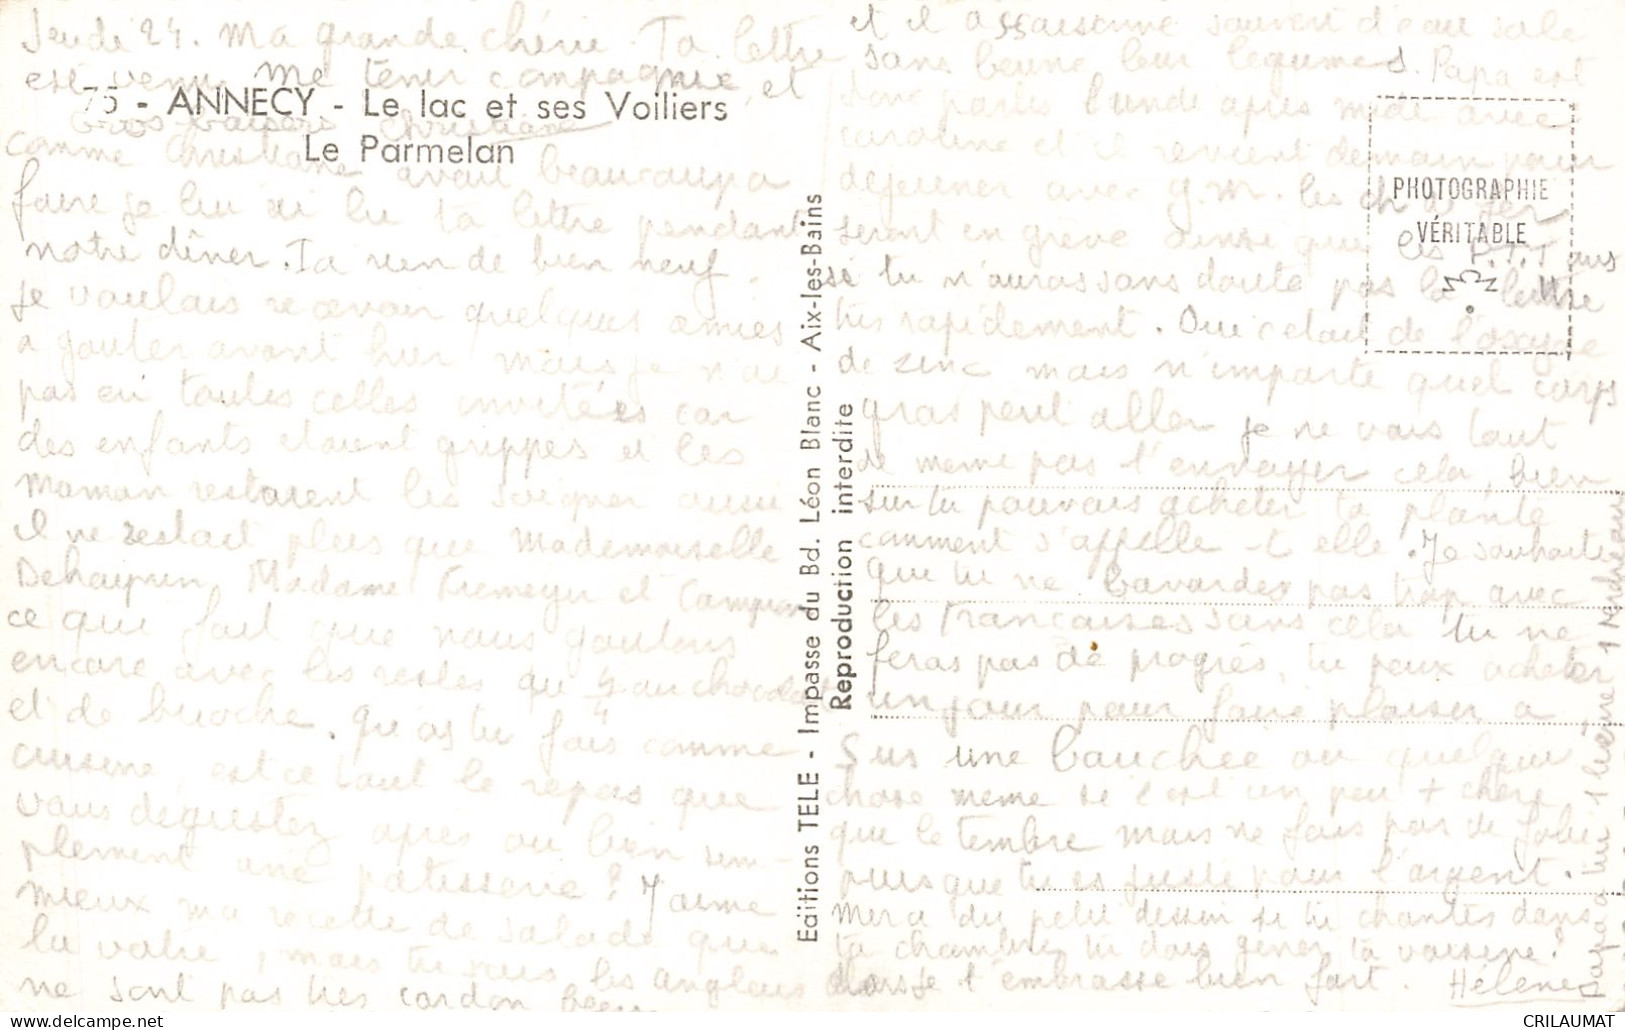 Jeudi 24. Ma grande chérie. Ta lettre
est venu me tenir compagnie, et
75 - ANNECY - Le lac et ses Voiliers
Gros baisers Christiane
Le Parmelan
comme Christiane avait beaucoup a
faire je lui ai lu ta lettre pendant
notre dîner. Ia rien de bien neuf.
je voulais recevoir quelques amies
a gouter avant hier mais je n'ai
pas eu toutes celles invitées car
des enfants etaient grippes et les
maman restaient les soigner aussi
il ne restait plus que Mademoiselle
Madame et Campion
ce qui fait que nous goutons
encore avec les restes qu au chocolat
et de brioche. Qu'as tu fais comme
cuisine, est ce tout le repas que
vous degustez apres ou bien sim-
plement une patisserie ? J'aime
mieux ma recette de salade que
la votre, mais tu sais les anglais
ne sont pas tres cordon bleu
et il assaisonne souvent d'eau salé
sans beurre leur legumes. Papa est
donc partis lundi apres midi avec
caroline et il revient demain pour
dejeuner avec g.m. les
PHOTOGRAPHIE
seront en grève ainsi que les P.T.T aus
VÉRITABLE
si tu n'auras sans doute pas la lettre
tres rapidement. Oui c'etait de l'oxyde
de zinc mais n'importe quel corps
gras peut aller je ne vais tout
de meme pas t'envoyer cela, bien
sur tu pouvais acheter ta plante
comment s'appelle-t elle. Je souhaite
que tu ne bavardes pas trop avec
les Françaises sans cela tu ne
feras pas de progrés, tu peux acheter
un jour pour faire plaisir a
Sus une bouchée ou quelque
chose meme si c'est un peu + chere
que le timbre mais ne fais pas de folie
puisque tu es juste pour l'argent.
Merci du petit dessin si tu chantes dans
ta chambre tu dois gener ta voisine?
alors je t'embrasse bien fort. Hélène
Papa a
Editions TELE - Impasse du Bd. Léon Blanc - Aix-les-Bains
Reproduction interdite
delcampe.net
CRILAUMAT